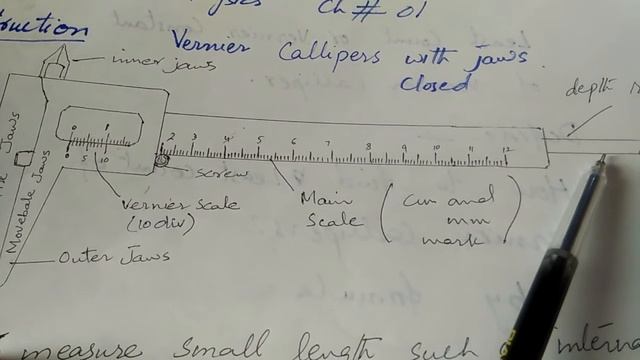 Ch # 01
Vernier Callipers with Jaws
Closed
inner jaws
depth
0 1 2 3 4 5 6 7 8 9 10 11 12
0 5 10
screw
Vernier Scale
(10 div)
Main
Scale
(cm and
mm
mark)
Movebale Jaws
Jaws
Outer Jaws
measure small length such